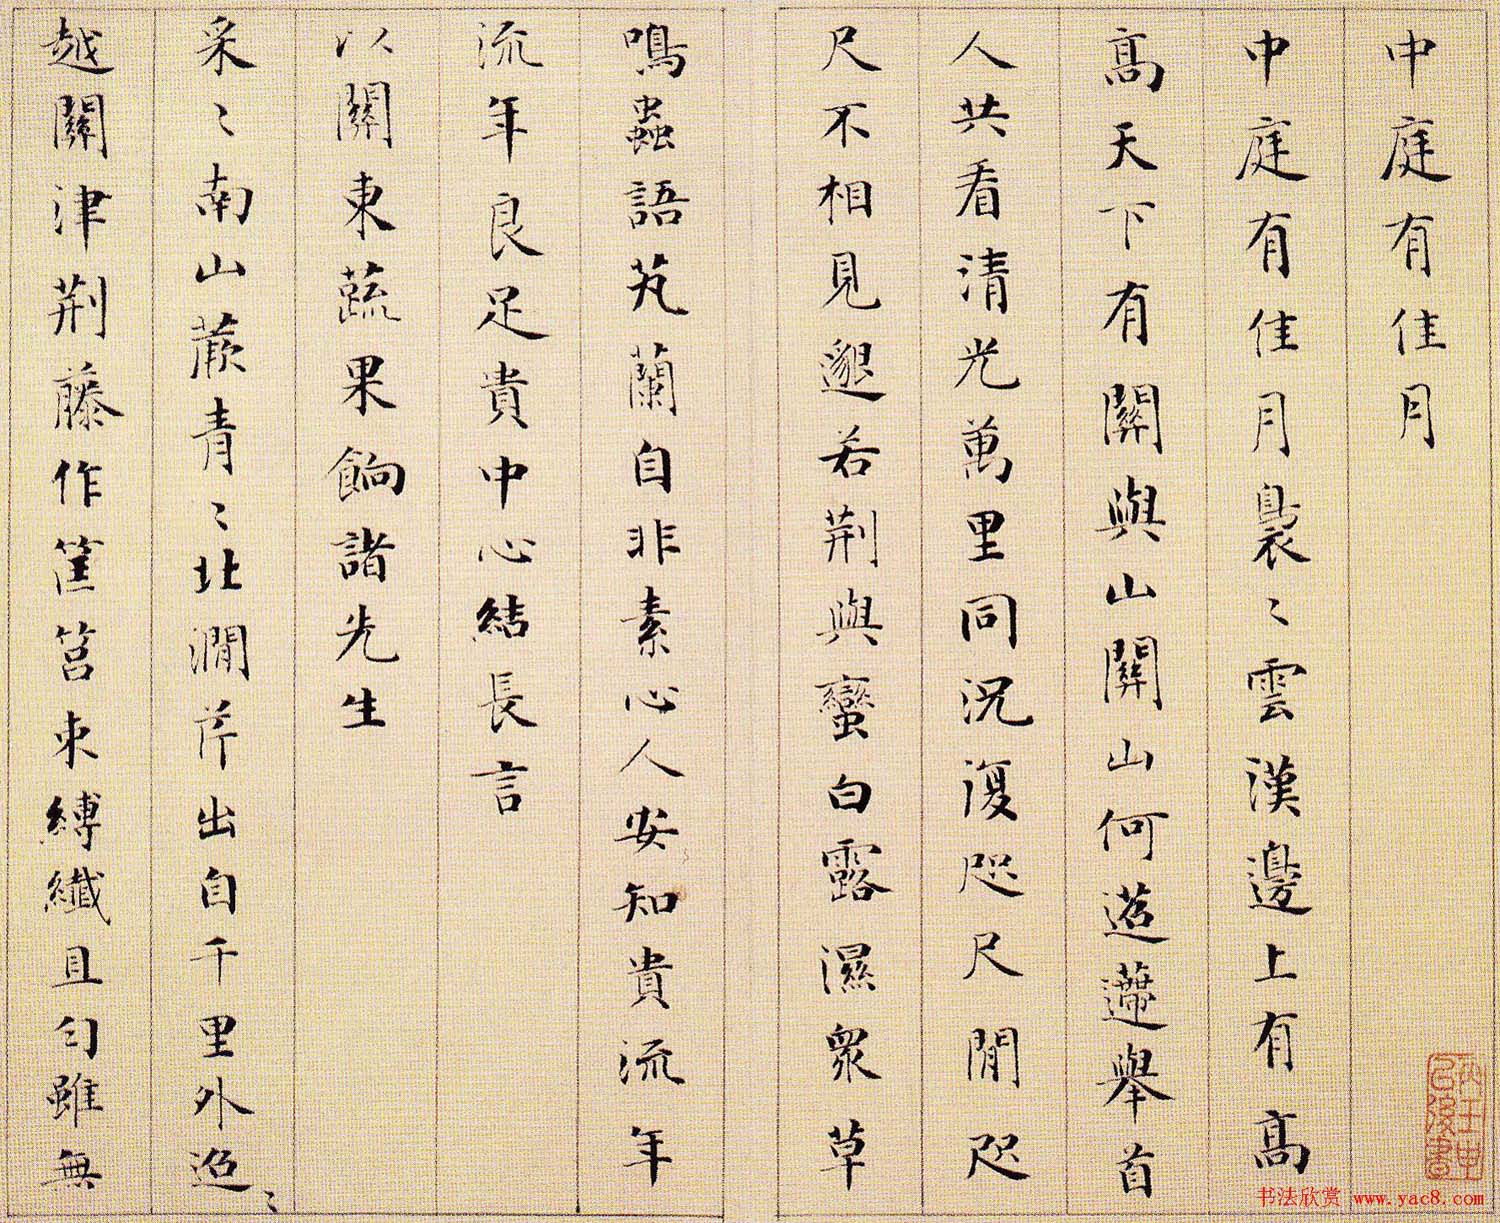 中庭有佳月
中庭有佳月裊〻雲漢邊上有高
高天下有關與山關山何迢遰舉首
人共看清光萬里同況復咫尺間咫
尺不相見邈若荆與蠻白露濕眾草
鳴蟲語芄蘭自非素心人安知貴流年
流年良足貴中心結長言
以關東蔬果餉諸先生
采〻南山蕨青〻北澗芹出自千里外迢〻
越關津荆藤作筐筥束縛纖且勻雖無
书法欣赏 www.yac8.com